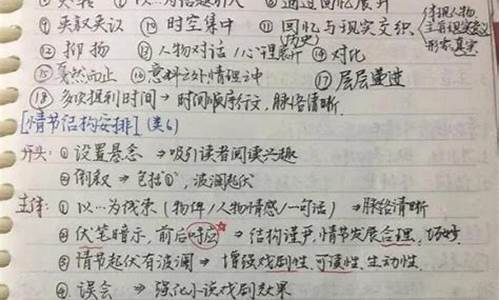 ⑦ 以…为话题引入 ⑧ 通过回忆展开
⑨ 夹叙夹议 ⑩ 时空集中 ⑪ 回忆(历史)与现实交织 体现人物 主旨现实意义 形象真实
⑫ 抑扬 ⑬ 人物对话/心理展开 ⑭ 对比
⑮ 戛然而止 ⑯ 意料之外情理之中 ⑰ 层层递进
⑱ 多次提到时间→时间顺序行文,脉络清晰.
[情节结构安排](类6)
开头: ① 设置悬念 → 吸引读者阅读兴趣
② 倒叙 → 包括"①",波澜起伏
主体: ① 以…为线索(物件/人物情感/一句话)→脉络清晰
② 伏笔暗示,前后呼应☆→ 结构严严,情节发展合理,巧妙
③ 情节起伏有波澜→ 增强戏剧性,可读性,生动性.
④ 误会 → 强化小说戏剧效果